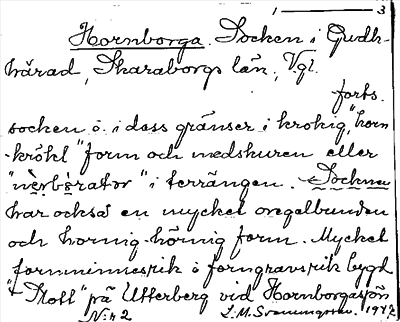 1 — 3
Hornborga. Socken i Gudh.
härad, Skaraborgs län, Vgl.
forts.
socken ö. i dess gränser i krokig, "horn
-krökt" form och nedskuren eller
"nerbèrator" i terrängen. Socknen
har också en mycket oregelbunden
och hornig-hörnig form. Mycket
fornminnesrik i forngravsrik bygd
"Troll" på Utterberg vid Hornborgasjön
N:r 2 1947